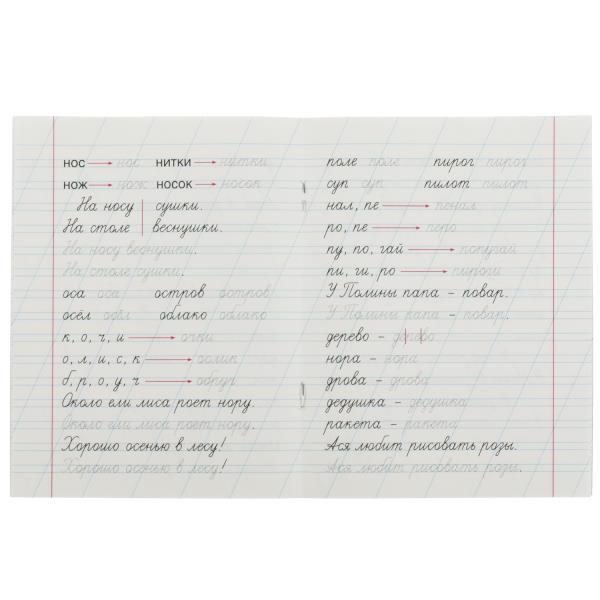 нос нос нитки нитки
нож нож носок носок
На носу сушки.
На столе веснушки.
На носу веснушки.
На столе сушки.
оса оса остров остров
осёл осёл облако облако
к, о, ч, и очки
о, л, и, с, к ослик
б, р, о, у, ч обруч
Около ели лиса роет нору.
Около ели лиса роет нору.
Хорошо осенью в лесу!
Хорошо осенью в лесу!
поле поле пирог пирог
суп суп пилот пилот
нал, пе пенал
ро, пе перо
пу, по, гай попугай
пи, ги, ро пироги
У Полины папа – повар.
У Полины папа – повар.
дерево – дерево
нора – нора
дрова – дрова
дедушка – дедушка
ракета – ракета
Ася любит рисовать розы.
Ася любит рисовать розы.